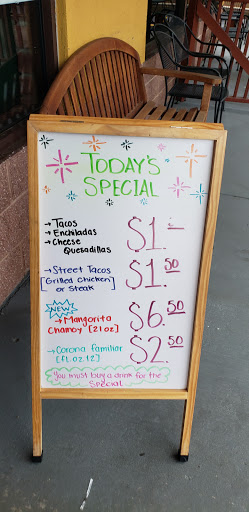 TODAY'S
SPECIAL
→ Tacos
→ Enchiladas
→ Cheese
Quesadillas
$1.-
→ Street Tacos
[Grilled chicken]
or Steak
$1.50
NEW
→ Mangorita
Chamoy [21oz]
$6.50
→ Corona familiar
[fl.oz.12]
$2.50
You must buy a drink for the
Special